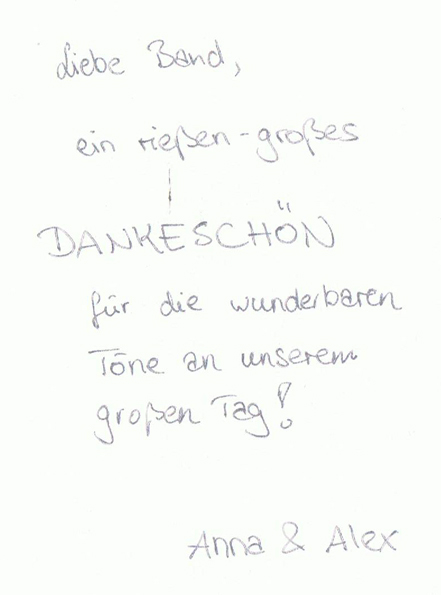 Liebe Band,
ein rießen-großes
DANKESCHÖN
für die wunderbaren
Töne an unserem
großen Tag!
Anna & Alex